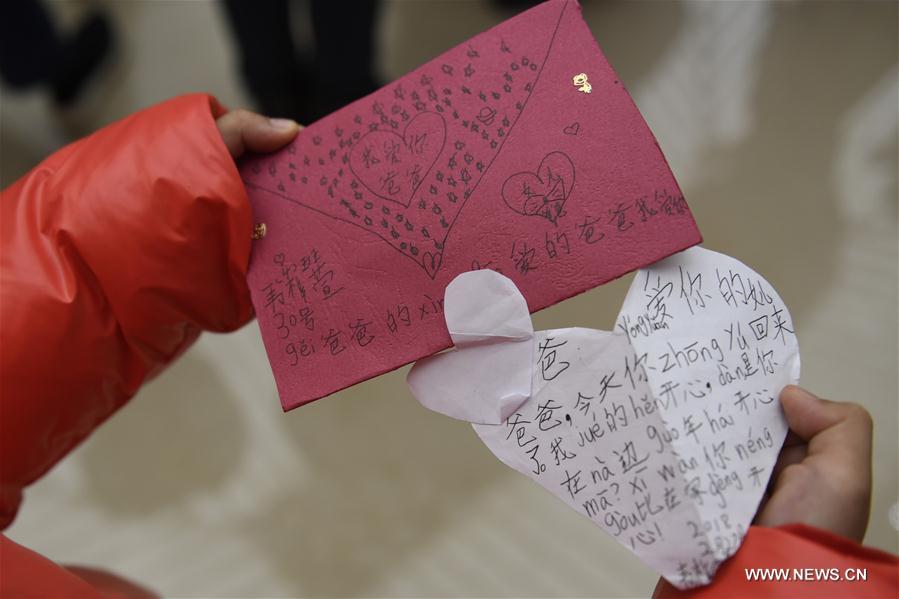 我爱你
爸爸
30号
gěi爸爸的xìn
爱的爸爸我爱你
爱你的
yǒngyuǎn
爸
爸爸,今天你zhōng yú回来
了我jué的hěn开心,dàn是你
在nà边guò年hái开心
mā?xī wàn你néng
gòu比在家gèng开
心!
2018
WWW.NEWS.CN